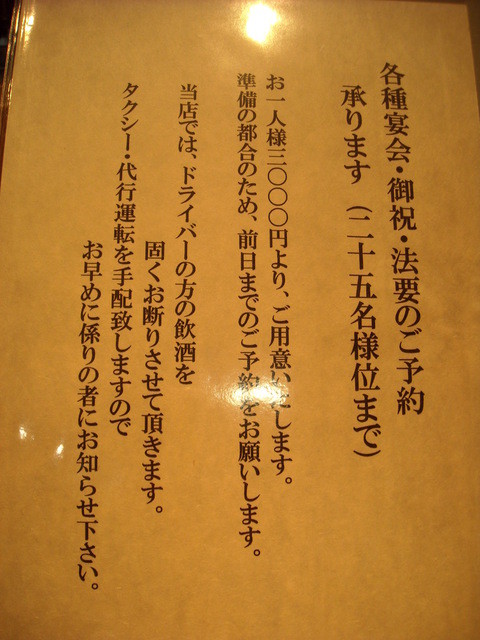 各種宴会・御祝・法要のご予約
承ります（二十五名様位まで）
お一人様三〇〇〇円より、ご用意いたします。
準備の都合のため、前日までのご予約をお願いします。
当店では、ドライバーの方の飲酒を
固くお断りさせて頂きます。
タクシー・代行運転を手配致しますので
お早めに係りの者にお知らせ下さい。